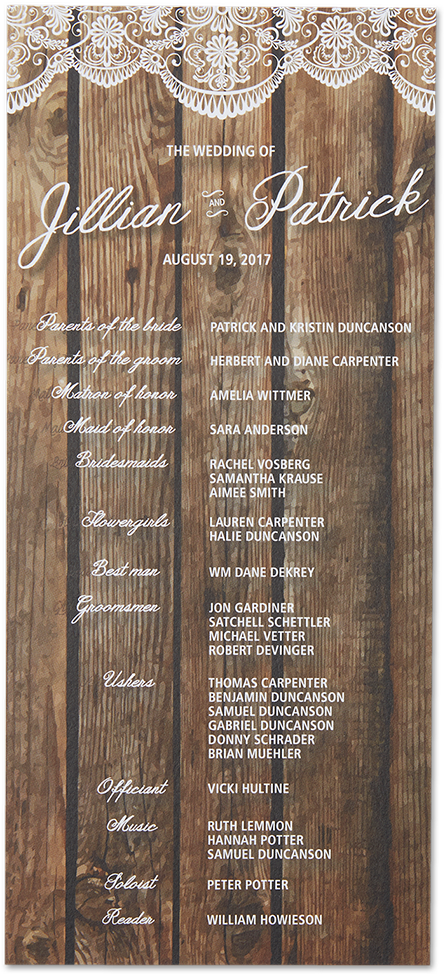 THE WEDDING OF
Jillian AND Patrick
AUGUST 19, 2017
Parents of the bride PATRICK AND KRISTIN DUNCANSON
Parents of the groom HERBERT AND DIANE CARPENTER
Matron of honor AMELIA WITTMER
Maid of honor SARA ANDERSON
Bridesmaids RACHEL VOSBERG
SAMANTHA KRAUSE
AIMEE SMITH
Flowergirls LAUREN CARPENTER
HALIE DUNCANSON
Best man WM DANE DEKREY
Groomsmen JON GARDINER
SATCHELL SCHETTLER
MICHAEL VETTER
ROBERT DEVINGER
Ushers THOMAS CARPENTER
BENJAMIN DUNCANSON
SAMUEL DUNCANSON
GABRIEL DUNCANSON
DONNY SCHRADER
BRIAN MUEHLER
Officiant VICKI HULTINE
Music RUTH LEMMON
HANNAH POTTER
SAMUEL DUNCANSON
Soloist PETER POTTER
Reader WILLIAM HOWIESON